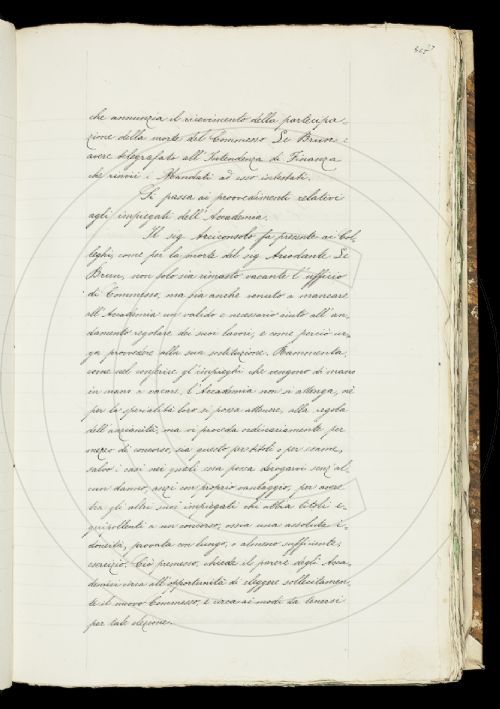 che annunzia il ricevimento della partecipa-
zione della morte del Commesso Le Brun e
avere telegrafato all'Intendenza di Finanza
che rinvii i Mandati ad esso intestati.
Si passa ai provvedimenti relativi
agli impiegati dell'Accademia.
Il sig. Arciconsolo fa presente ai Col-
leghi, come per la morte del sig. Ariodante Le
Brun, non solo sia rimasto vacante l'ufficio
di Commesso, ma sia anche venuto a mancare
all'Accademia un valido e necessario aiuto all'an-
damento regolare dei suoi lavori, e come perciò ur-
ga provvedere alla sua sostituzione. Rammenta,
come nel conferire gl'impieghi che vengono di mano
in mano a vacare, l'Accademia non si attenga, nè
per la specialità loro si possa attenere, alla regola
dell'anzianità, ma vi proceda ordinariamente per
mezzo di concorso, sia questo per titoli o per esame,
salvo i casi nei quali essa possa derogarvi senz'al-
cun danno, anzi con proprio vantaggio, per avere
tra gli altri suoi impiegati chi abbia titoli e-
quipollenti a un concorso, ossia una assoluta i-
doneità, provata con lungo, o almeno sufficiente,
esercizio. Ciò premesso, chiede il parere degli Acca-
demici circa all'opportunità di eleggere sollecitamen-
te il nuovo Commesso, e circa ai modi da tenersi
per tale elezione.